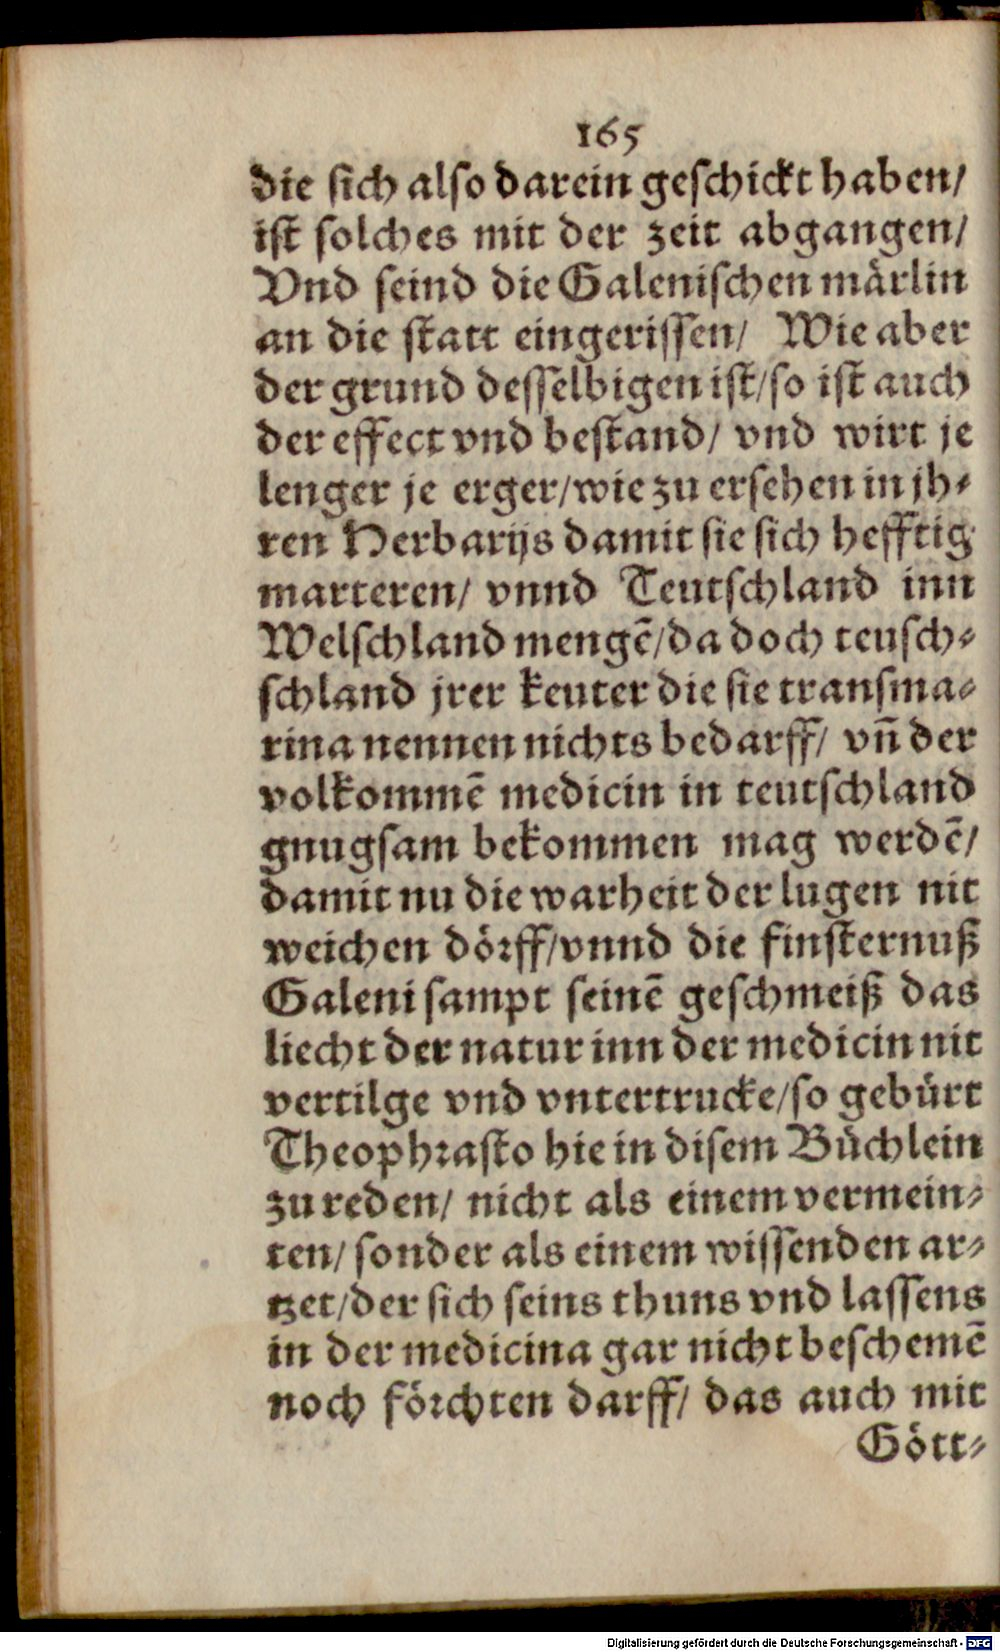 165
die ſich alſo darein geſchickt haben/
iſt ſolches mit der zeit abgangen/
Vnd ſeind die Galeniſchen märlin
an die ſtatt eingeriſſen/ Wie aber
der grund deſſelbigen iſt/ſo iſt auch
der effect vnd beſtand/ vnd wirt je
lenger je erger/wie zu erſehen in jh⸗
ren Herbarijs damit ſie ſich hefftig
marteren/ vnnd Teutſchland inn
Welſchland mengē/da doch teuſch⸗
ſchland jrer keuter die ſie transma⸗
rina nennen nichts bedarff/ vn̄ der
volkommē medicin in teutſchland
gnugſam bekommen mag werdē/
damit nu die warheit der lugen nit
weichen dörff/vnnd die finſternuß
Galeni ſampt ſeinē geſchmeiß das
liecht der natur inn der medicin nit
vertilge vnd vntertrucke/ſo gebürt
Theophraſto hie in diſem Büchlein
zu reden/ nicht als einem vermein⸗
ten/ ſonder als einem wiſſenden ar⸗
tzet/der ſich ſeins thuns vnd laſſens
in der medicina gar nicht beſchemē
noch förchten darff/ das auch mit
Gött⸗
Digitalisierung gefördert durch die Deutsche Forschungsgemeinschaft - DFG